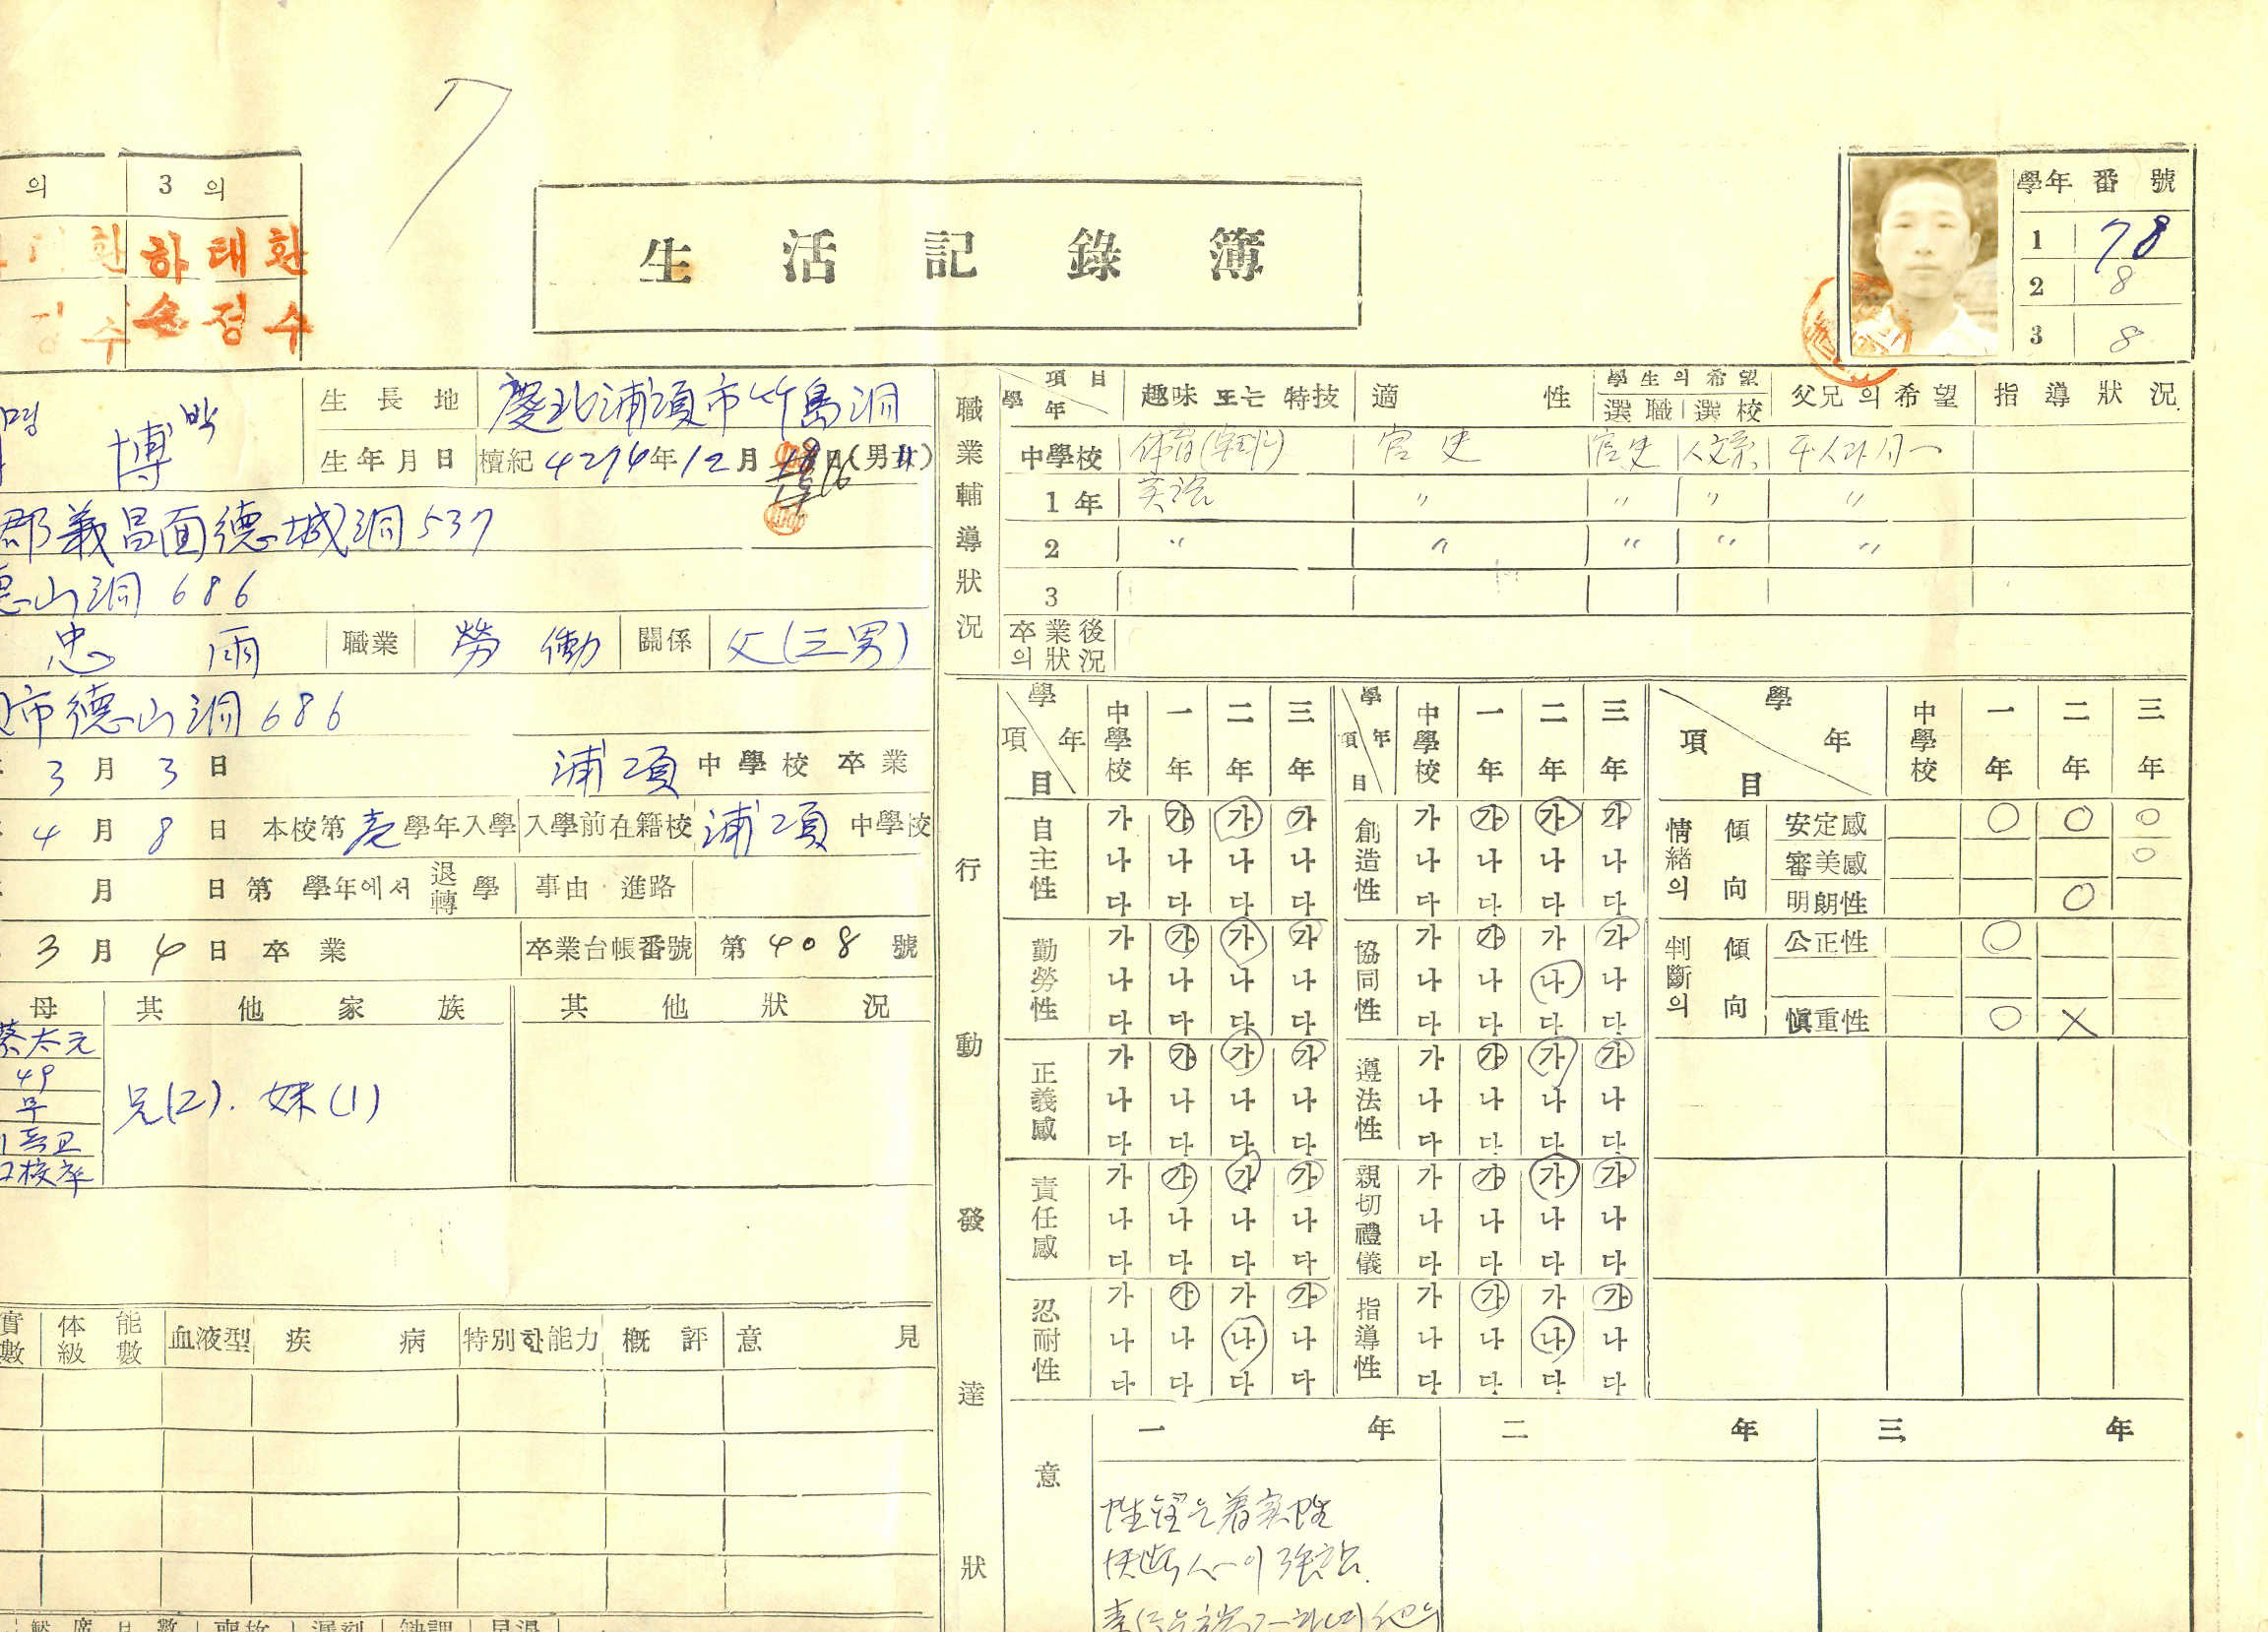 의 3 의
하태환
손정수
生活記錄簿
學年 番號
1 78
2 8
3 8
명 博 박
生長地 慶北浦項市竹島洞
生年月日 檀紀4274年12月 16日(男女)
郡義昌面德城洞537
德山洞686
忠雨 職業 勞働 關係 父(三男)
市德山洞686
3月3日 浦項中學校卒業
4月8日 本校第壱學年入學 入學前在籍校 浦項中學校
月 日 第 學年에서 退轉學 事由·進路
3月4日 卒業 卒業台帳番號 第408號
母 其他家族 其他狀況
蔡太元
49
무
兄(2). 妹(1)
校卒
體能級數 血液型 疾病 特別한能力 概評 意見
職業輔導狀況
學年 項目 趣味 또는 特技 適性 學生의希望 選職 選校 父兄의希望 指導狀況
中學校 体育 官吏 官吏 人文系
1年 英語 〃 〃 〃 〃
2 〃 〃 〃 〃 〃
3
卒業後의狀況
行動發達狀
學年 項目 中學校 一年 二年 三年 學年 項目 中學校 一年 二年 三年 學年 項目 中學校 一年 二年 三年
自主性 가 가 가 가 創造性 가 가 가 가 情緖의傾向 安定感 ○ ○ ○
나 나 나 나 나 나 나 나 審美感 ○
다 다 다 다 다 다 다 다 明朗性 ○
勤勞性 가 가 가 가 協同性 가 가 가 가 判斷의傾向 公正性 ○
나 나 나 나 나 나 나 나
다 다 다 다 다 다 다 다 愼重性 ○ X
正義感 가 가 가 가 遵法性 가 가 가 가
나 나 나 나 나 나 나 나
다 다 다 다 다 다 다 다
責任感 가 가 가 가 親切禮儀 가 가 가 가
나 나 나 나 나 나 나 나
다 다 다 다 다 다 다 다
忍耐性 가 가 가 가 指導性 가 가 가 가
나 나 나 나 나 나 나 나
다 다 다 다 다 다 다 다
意 一年 二年 三年
着実